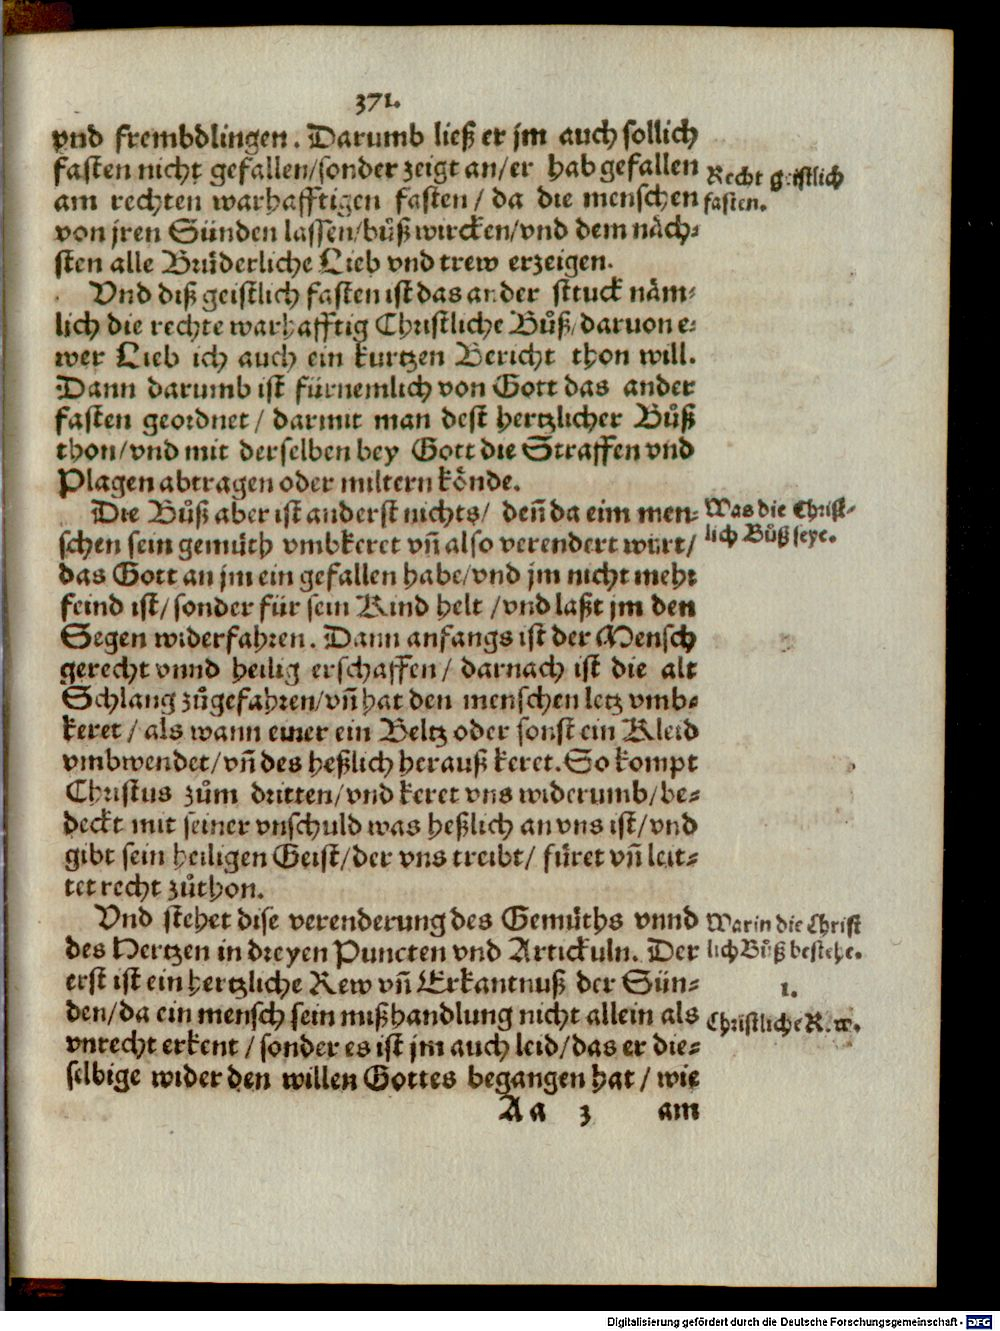 371.
vnd frembdlingen. Darumb ließ er jm auch sollich
fasten nicht gefallen/sonder zeigt an/er hab gefallen
am rechten warhafftigen fasten/ da die menschen
von jren Sünden lassen/bůß wircken/vnd dem näch-
sten alle Brüderliche Lieb vnd trew erzeigen.
Recht geistlich
fasten.
Vnd diß geistlich fasten ist das ander stuck näm-
lich die rechte warhafftig Christliche Bůß/daruon e-
wer Lieb ich auch ein kurtzen Bericht thon will.
Dann darumb ist fürnemlich von Gott das ander
fasten geordnet/ darmit man dest hertzlicher Bůß
thon/vnd mit derselben bey Gott die Straffen vnd
Plagen abtragen oder miltern könde.
Die Bůß aber ist anderst nichts/ deñ da eim men-
schen sein gemüth vmbkeret vñ also verendert wirt/
das Gott an jm ein gefallen habe/vnd jm nicht mehr
feind ist/sonder für sein Kind helt /vnd laßt jm den
Segen widerfahren. Dann anfangs ist der Mensch
gerecht vnnd heilig erschaffen/ darnach ist die alt
Schlang zůgefahren/vñ hat den menschen letz vmb-
keret/ als wann einer ein Beltz oder sonst ein Kleid
vmbwendet/vñ des heßlich herauß keret. So kompt
Christus zům dritten/vnd keret vns widerumb/be-
deckt mit seiner vnschuld was heßlich an vns ist/vnd
gibt sein heiligen Geist/der vns treibt/ füret vñ leit-
tet recht zůthon.
Was die Christ-
lich Bůß seye.
Vnd stehet dise verenderung des Gemüths vnnd
des Hertzen in dreyen Puncten vnd Artickuln. Der
erst ist ein hertzliche Rew vñ Erkantnuß der Sün-
den/da ein mensch sein mißhandlung nicht allein als
vnrecht erkent/ sonder es ist jm auch leid/das er die-
selbige wider den willen Gottes begangen hat/ wie
Warin die Christ
lich Bůß bestehe.
1.
Christliche
Aa 3 am
Digitalisierung gefördert durch die Deutsche Forschungsgemeinschaft - DFG